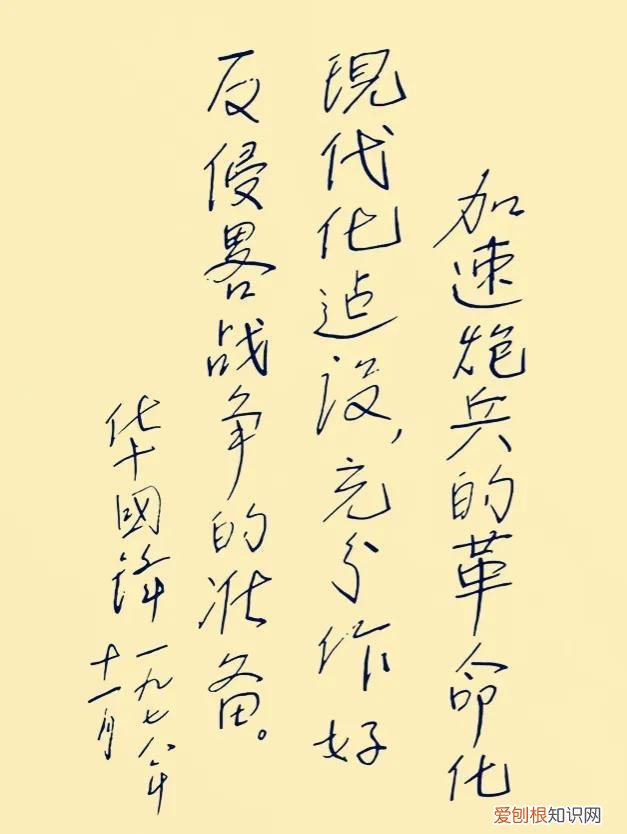 加速炮兵的革命化
現代化迠设,充分作好
反侵畧战争的准备。
华國锋
一九七八年
十一月
爱刨根知识网